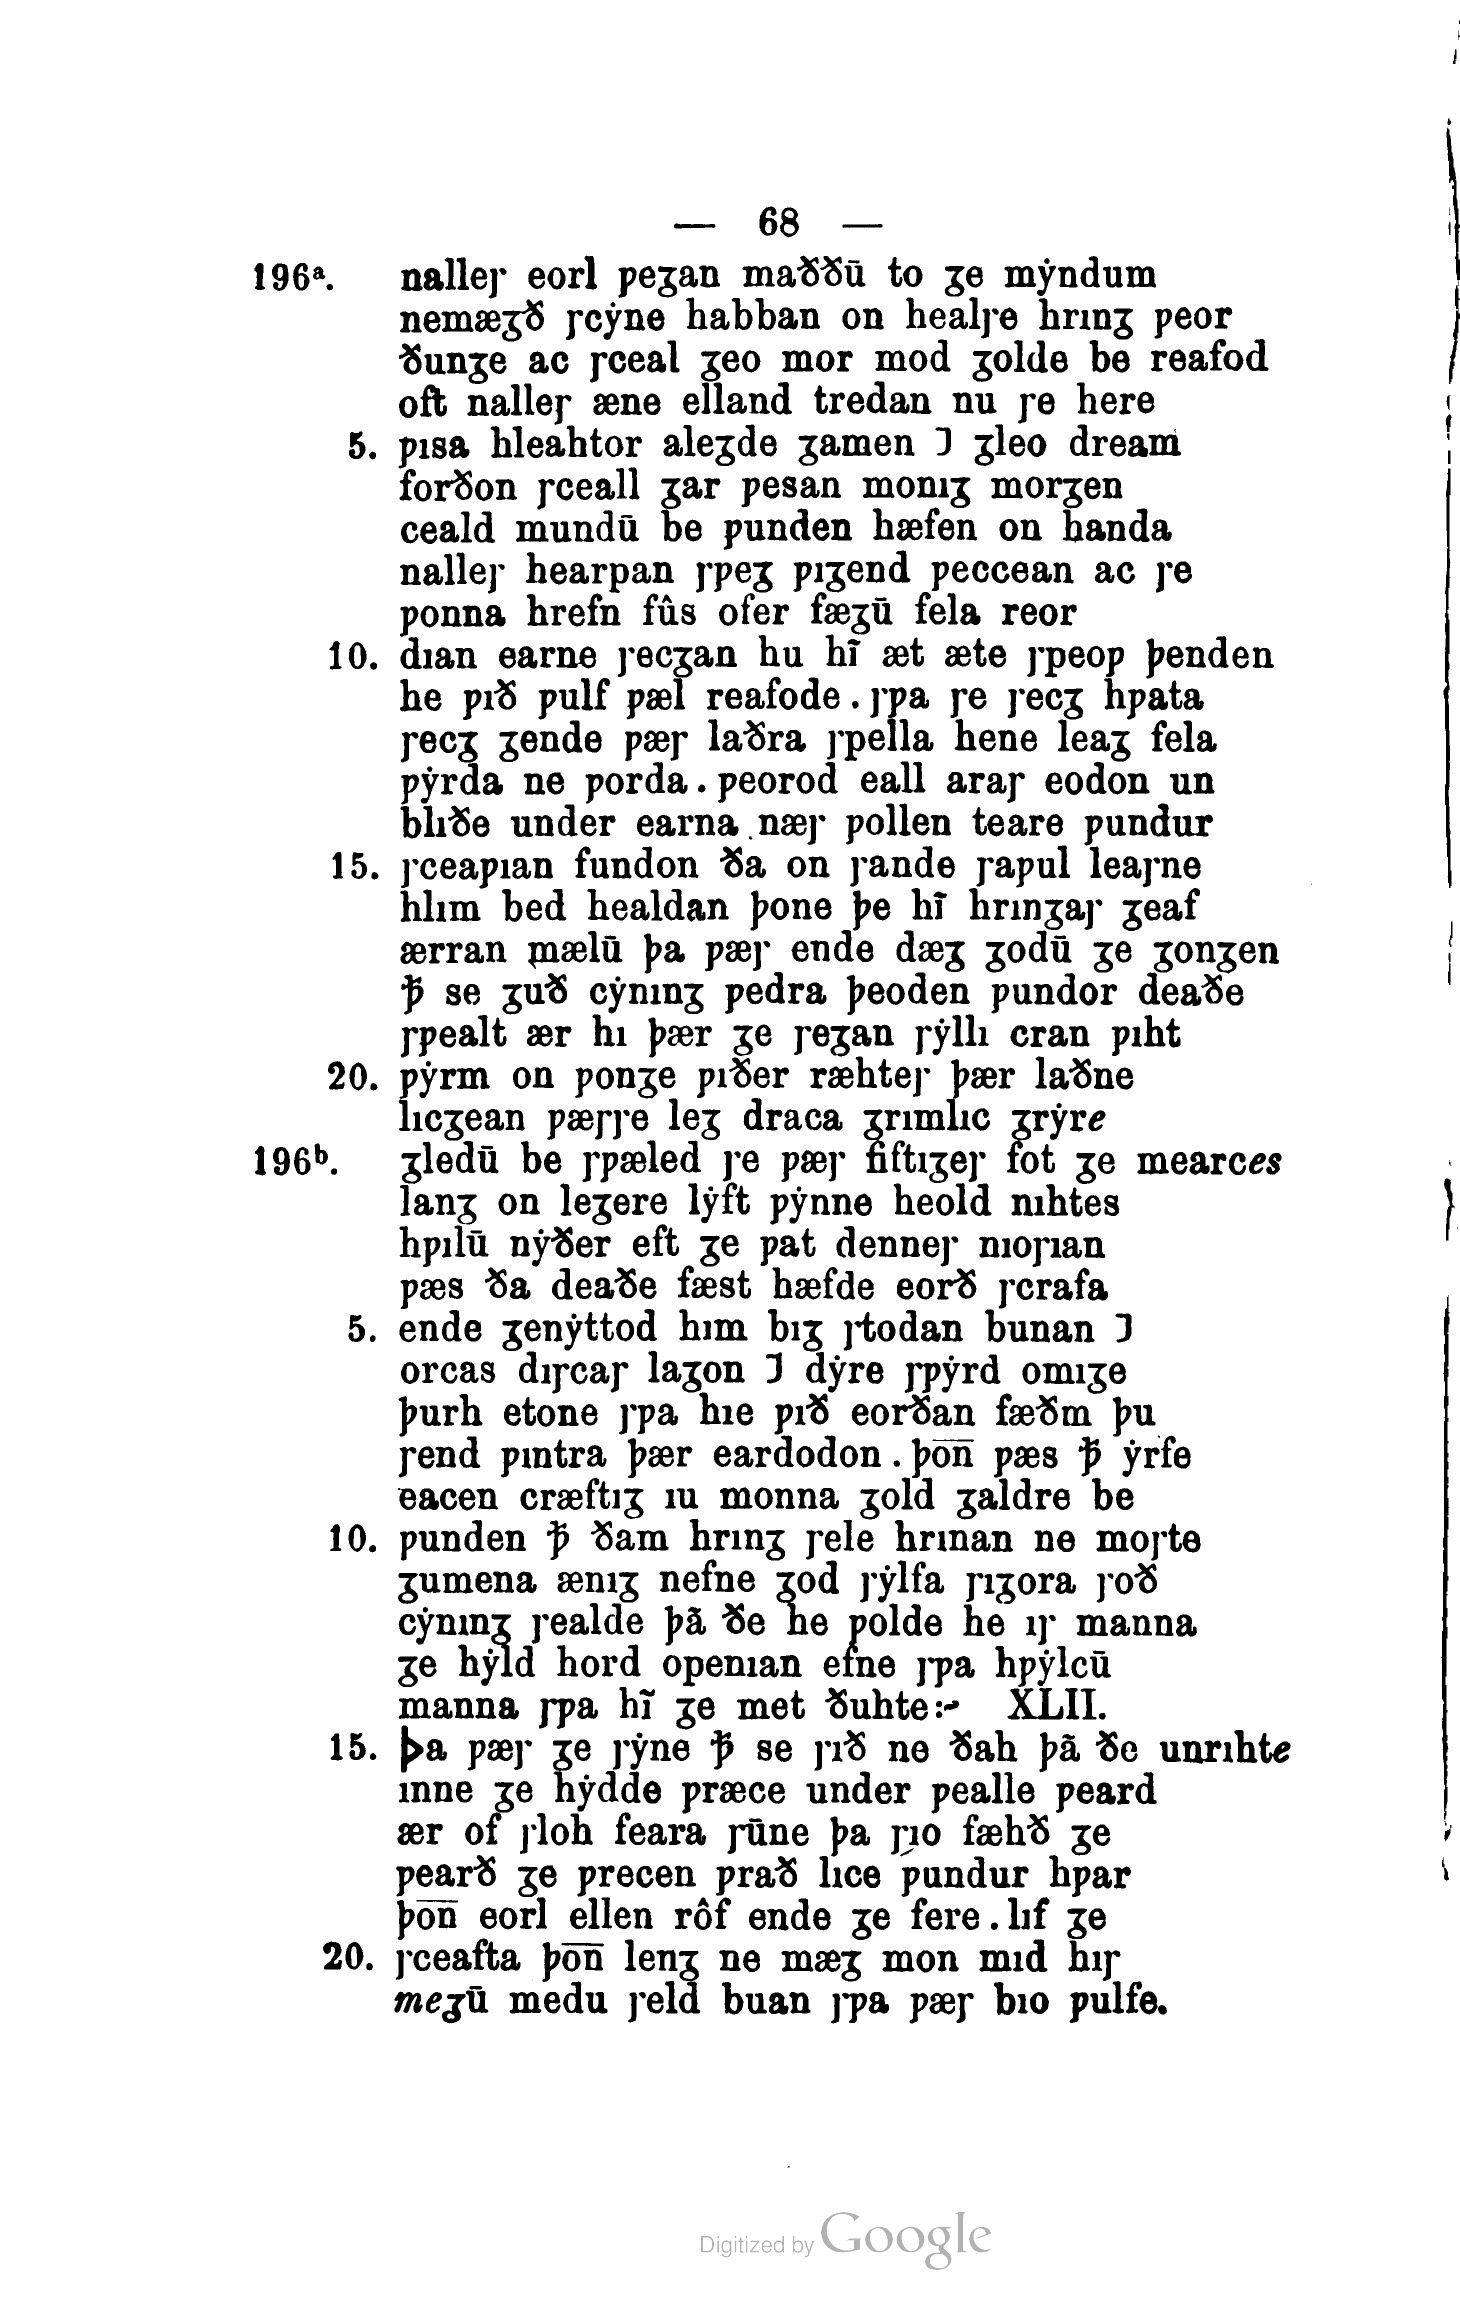 — 68 —
196ª. nalleꞅ eorl ƿeᵹan maððū to ᵹe mẏndum
nemæᵹð ꞅcẏne habban on healꞅe hrınᵹ ƿeor
ðunᵹe ac ꞅceal ᵹeo mor mod ᵹolde be reafod
oft nalleꞅ æne elland tredan nu ꞅe here
5. ƿısa hleahtor aleᵹde ᵹamen ⁊ ᵹleo dream
forðon ꞅceall ᵹar ƿesan monıᵹ morᵹen
ceald mundū be ƿunden hæfen on handa
nalleꞅ hearpan ꞅƿeᵹ ƿıᵹend ƿeccean ac ꞅe
ƿonna hrefn fûs ofer fæᵹū fela reor
10. dıan earne ꞅecᵹan hu hı̄ æt æte ꞅpeoƿ þenden
he ƿıð ƿulf ƿæl reafode . ꞅƿa ꞅe ꞅecᵹ hƿata
ꞅecᵹ ᵹende ƿæꞅ laðra ꞅpella hene leaᵹ fela
ƿẏrda ne ƿorda . ƿeorod eall araꞅ eodon un
blıðe under earna næꞅ ƿollen teare ƿundur
15. ꞅceaƿıan fundon ða on ꞅande ꞅaƿul leaꞅne
hlım bed healdan þone þe hı̄ hrınᵹaꞅ ᵹeaf
ærran mælū þa ƿæꞅ ende dæᵹ ᵹodū ᵹe ᵹonᵹen
ꝥ se ᵹuð cẏnınᵹ ƿedra þeoden ƿundor deaðe
ꞅƿealt ær hı þær ᵹe ꞅeᵹan ꞅẏllı cran ƿıht
20. ƿẏrm on ƿonᵹe ƿıðer ræhteꞅ þær laðne
lıcᵹean ƿæꞅꞅe leᵹ draca ᵹrımlıc ᵹrẏre
196ᵇ. ᵹledū be ꞅƿæled ꞅe ƿæꞅ fiftıᵹeꞅ fot ᵹe mearces
lanᵹ on leᵹere lẏft ƿẏnne heold nıhtes
hƿılū nẏðer eft ᵹe ƿat denneꞅ nıoꞅıan
ƿæs ða deaðe fæst hæfde eorð ꞅcrafa
5. ende ᵹenẏttod hım bıᵹ ꞅtodan bunan ⁊
orcas dıꞅcaꞅ laᵹon ⁊ dẏre ꞅƿẏrd omıᵹe
þurh etone ꞅƿa hıe ƿıð eorðan fæðm þu
ꞅend ƿıntra þær eardodon . þōn̄ ƿæs ꝥ ẏrfe
eacen cræftıᵹ ıu monna ᵹold ᵹaldre be
10. ƿunden ꝥ ðam hrınᵹ ꞅele hrınan ne moꞅte
ᵹumena ænıᵹ nefne ᵹod ꞅẏlfa ꞅıᵹora ꞅoð
cẏnınᵹ ꞅealde þā ðe he ƿolde he ıꞅ manna
ᵹe hẏld hord openıan efne ꞅƿa hƿẏlcū
manna ꞅƿa hı̄ ᵹe met ðuhte:⁊ XLII.
15. Þa ƿæꞅ ᵹe ꞅẏne ꝥ se ꞅıð ne ðah þā ðe unrıhte
ınne ᵹe hẏdde ƿræce under ƿealle ƿeard
ær of ꞅloh feara ꞅūne þa ꞅıo fæhð ᵹe
ƿearð ᵹe ƿrecen ƿrað lıce ƿundur hƿar
þōn̄ eorl ellen rôf ende ᵹe fere . lıf ᵹe
20. ꞅceafta þōn̄ lenᵹ ne mæᵹ mon mıd hıꞅ
meᵹū medu ꞅeld buan ꞅƿa ƿæꞅ bıo ƿulfe.
Digitized by Google